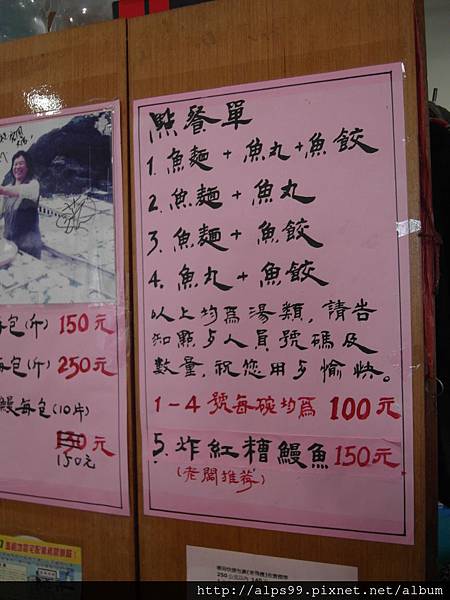 點餐單
1. 魚麵 + 魚丸+魚餃
2. 魚麵 + 魚丸
3. 魚麵 + 魚餃
4. 魚丸 + 魚餃
以上均為湯類,請告
知點歺人員號碼及
數量,祝您用歺愉快。
1-4 號每碗均為 100元
5. 炸紅糟鰻魚 150元
(老闆推荐)
每包(斤) 150元
每包(斤) 250元
鰻每包(10片)
元
150元
http://alps99.pixnet.net/album